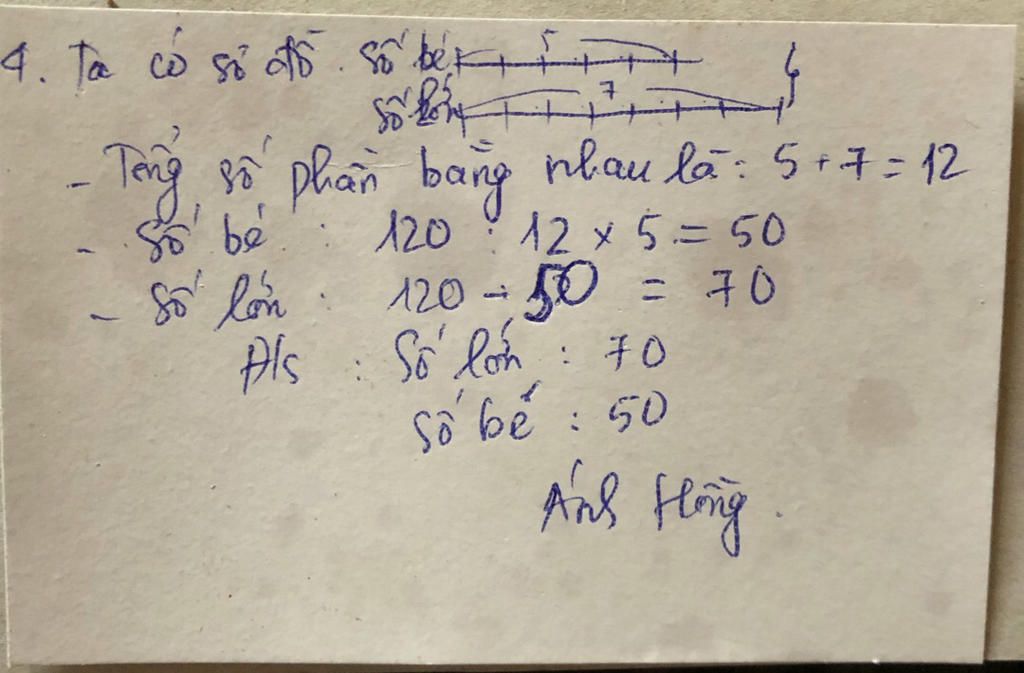 4. Ta có sơ đồ. Số bé 5
Số lớn 7
- Tổng số phần bằng nhau là: 5 + 7 = 12
- Số bé : 120 : 12 x 5 = 50
- Số lớn : 120 - 50 = 70
Đ/s : Số lớn : 70
Số bé : 50
Ánh Hồng.